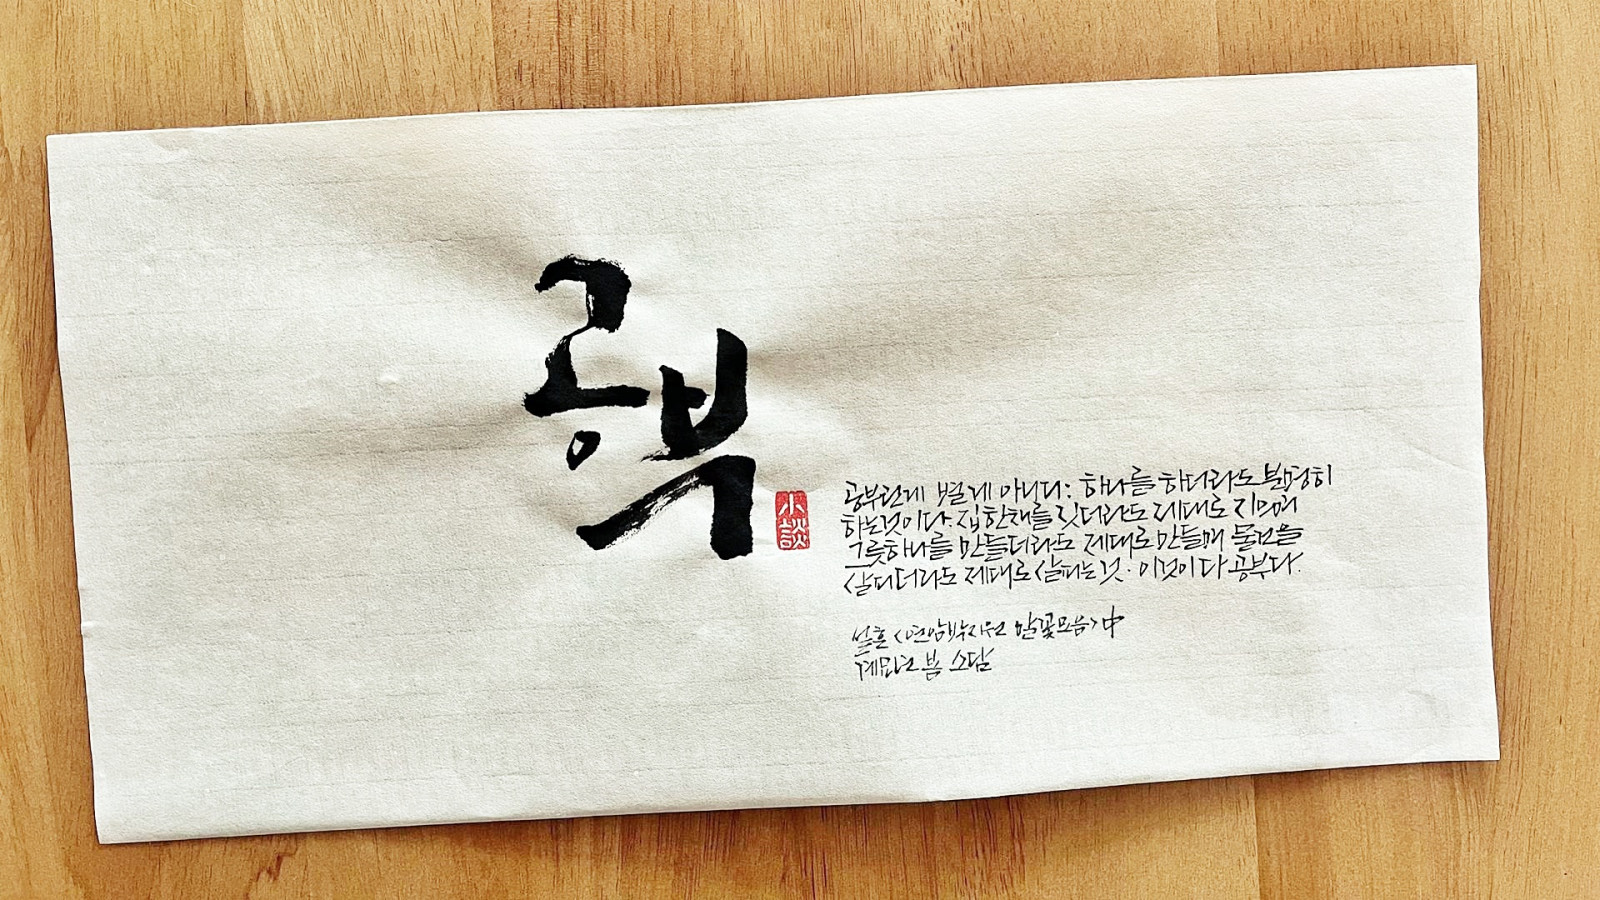 공부
小談
공부란게 별게 아니다: 하나를 하더라도 분명히
하는것이다. 집한채를 짓더라도 제대로 지으며
그릇하나를 만들더라도 제대로 만들며 물건을
살피더라도 제대로 살피는 것. 이것이 다 공부다.
설흔 <연암박지원 말꽃모음> 中
계묘년 봄 소담